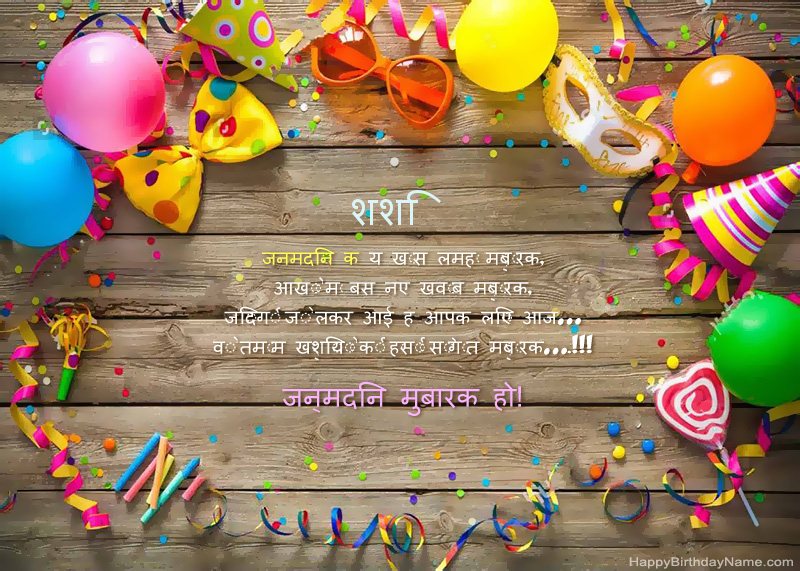 शशि
जनमदिन क य ख़ास लमहे मुबारक,
आँखों में बसे नए ख्वाब मुबारक,
जिंदगी जो लेकर आई है आपके लिए आज...
वो तमाम खुशियों की हंसी सौगात मुबारक...!!!
जन्मदिन मुबारक हो!
HappyBirthdayName.com